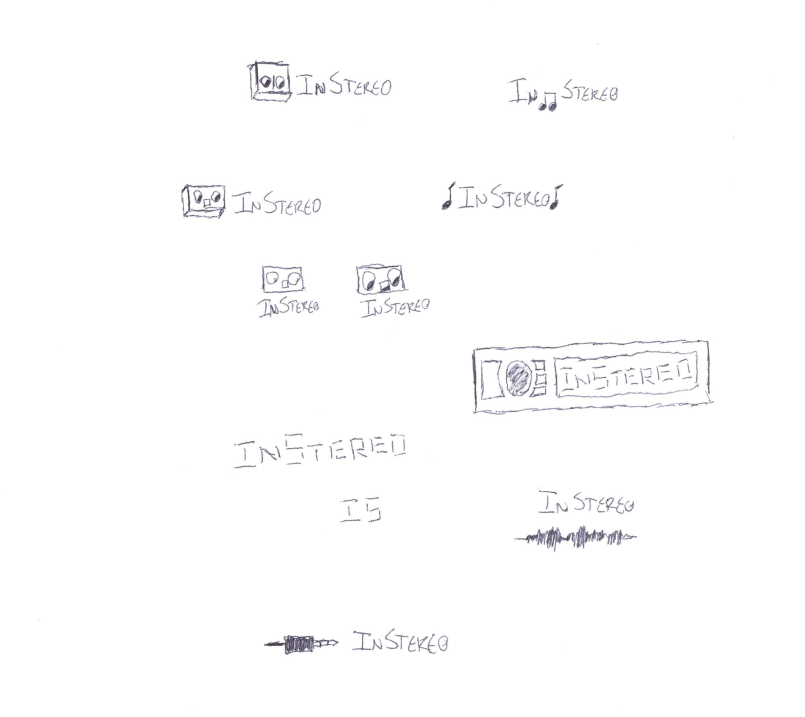 InStereo
In Stereo
InStereo
InStereo
InStereo
InStereo
InStereo
InStereo
IS
InStereo
InStereo